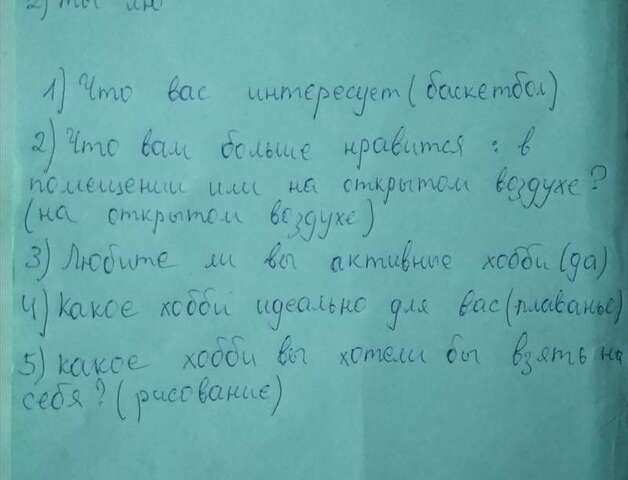 2) ты лю
1) Что вас интересует (баскетбол)
2) Что вам больше нравится : в
помещении или на открытом воздухе?
(на открытом воздухе)
3) Любите ли вы активные хобби (да)
4) Какое хобби идеально для вас (плаванье)
5) какое хобби вы хотели бы взять на
себя? (рисование)